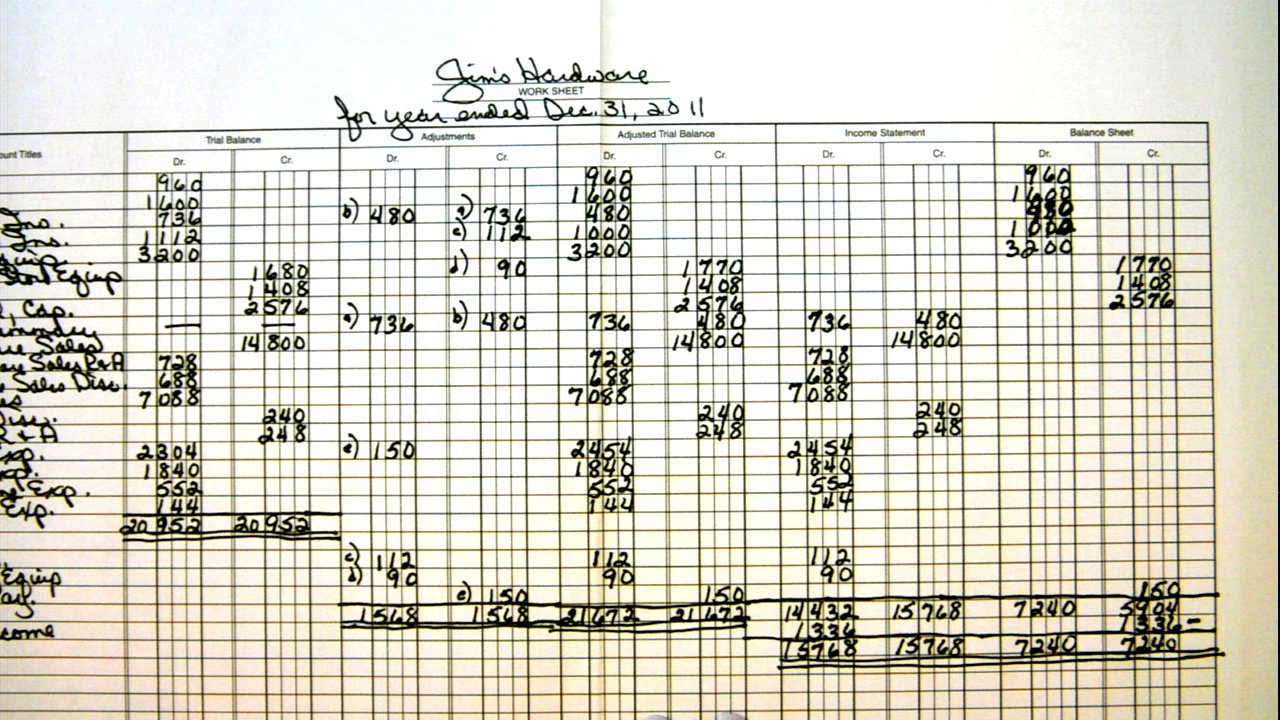 Jim's Hardware
WORK SHEET
for year ended Dec. 31, 2011
ount Titles Trial Balance Adjustments Adjusted Trial Balance Income Statement Balance Sheet
Dr. Cr. Dr. Cr. Dr. Cr. Dr. Cr. Dr. Cr.
960 960 960
1600 1600 1600
Ins. 736 b) 480 a) 736 480 480
Ins. 1112 c) 112 1000 1000
quip. 3200 3200 3200
Store Equip 1680 d) 90 1770 1770
1408 1408 1408
, Cap. 2576 2576 2576
ummary — — a) 736 b) 480 736 480 736 480
Sales 14800 14800 14800
Sales R+A 728 728 728
Sales Disc. 688 688 688
es 7088 7088 7088
Disc. 240 240 240
R + A 248 248 248
Exp. 2304 e) 150 2454 2454
xp. 1840 1840 1840
Exp. 552 552 552
Exp. 144 144 144
20952 20952
c) 112 112 112
Equip d) 90 90 90
ay. e) 150 150 150
1568 1568 21672 21672 14432 15768 7240 5904
come 1336 1336 –
15768 15768 7240 7240